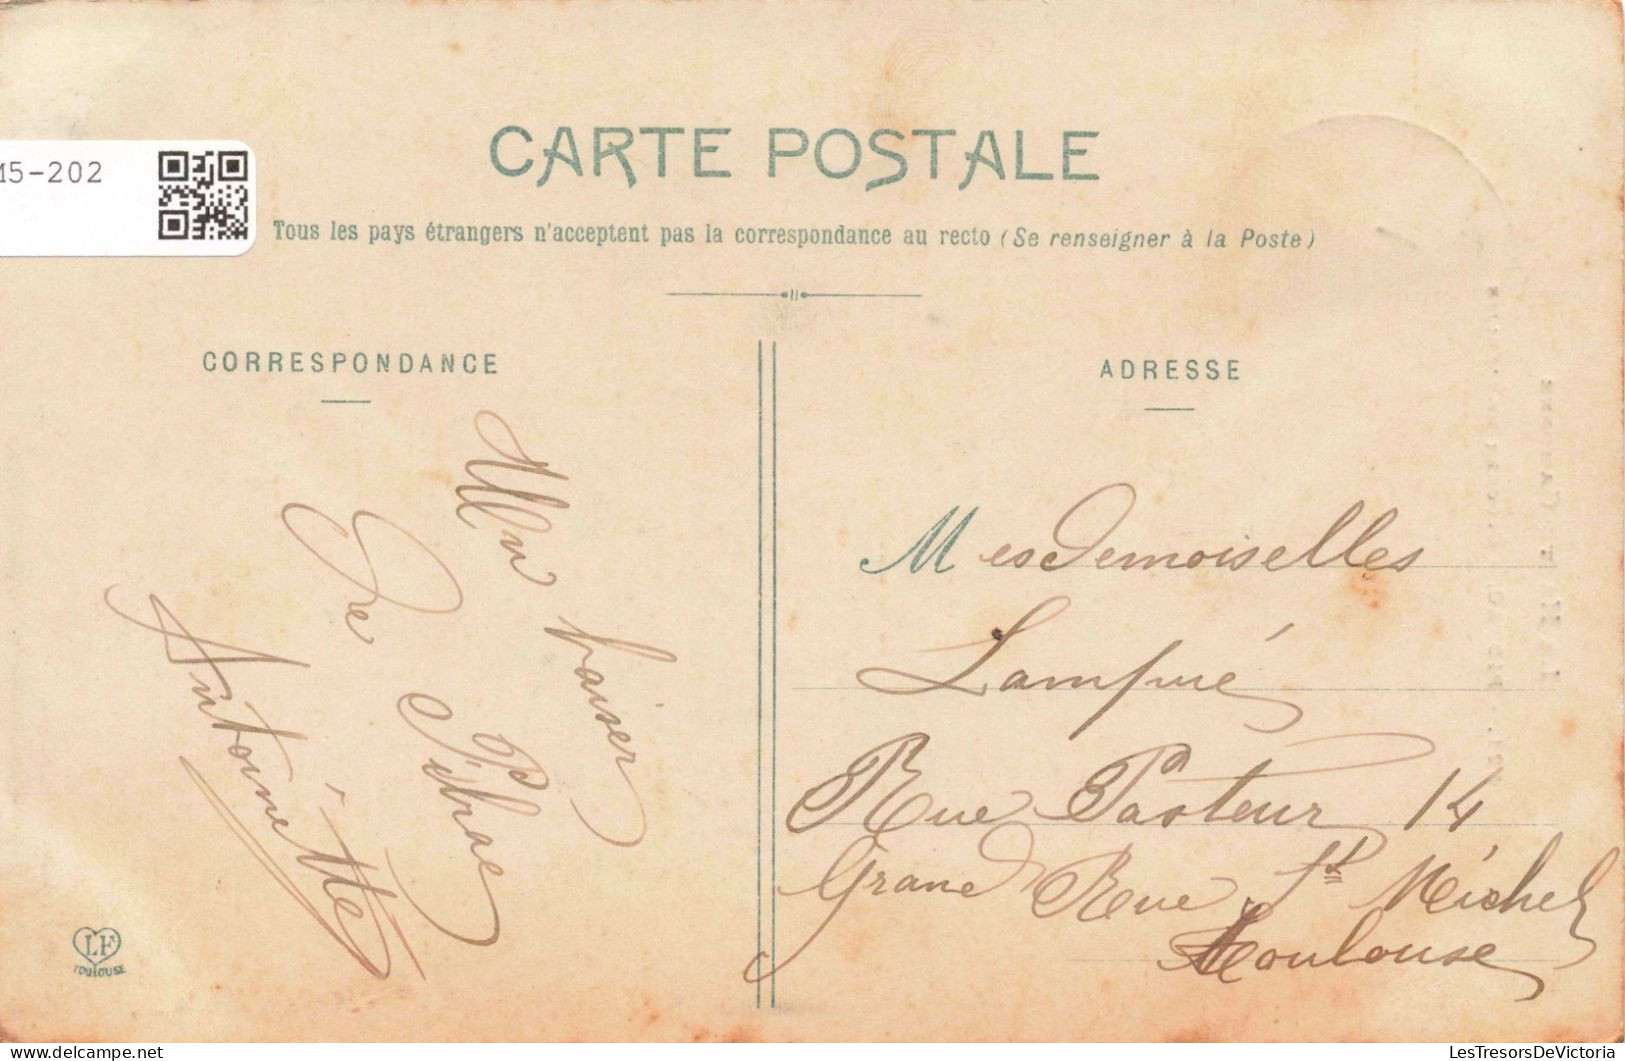 CARTE POSTALE
M5-202
Tous les pays étrangers n'acceptent pas la correspondance au recto (Se renseigner à la Poste)
CORRESPONDANCE
Un baiser
de Pibrac
Antoinette
ADRESSE
Mesdemoiselles
Lampué
Rue Pasteur 14
Grand Rue St Michel
Toulouse
LF
TOULOUSE
LesTresorsDeVictoria